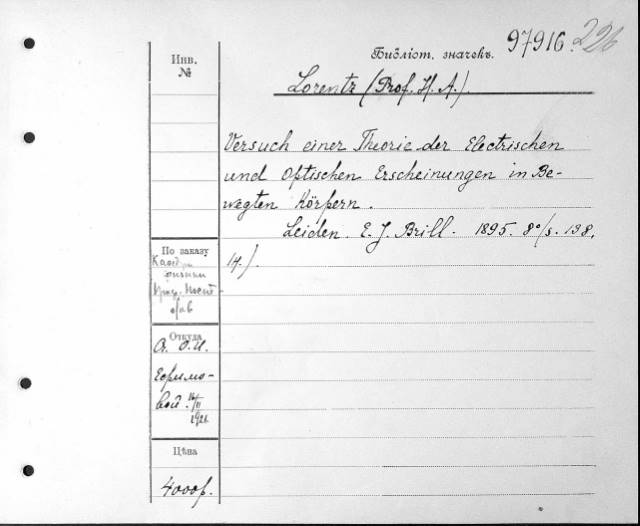 97916. 226
Библіот. значекъ.
Инв.
№
Lorentz (Prof. H. A.)
Versuch einer Theorie der Electrischen
und Optischen Erscheinungen in Be-
wegten Körpern.
Leiden. E. J. Brill. 1895. 8°/s. 138.
14.).
По заказу
Откуда
О. И.
Ефимо-
вой.
Цѣна
4000р.